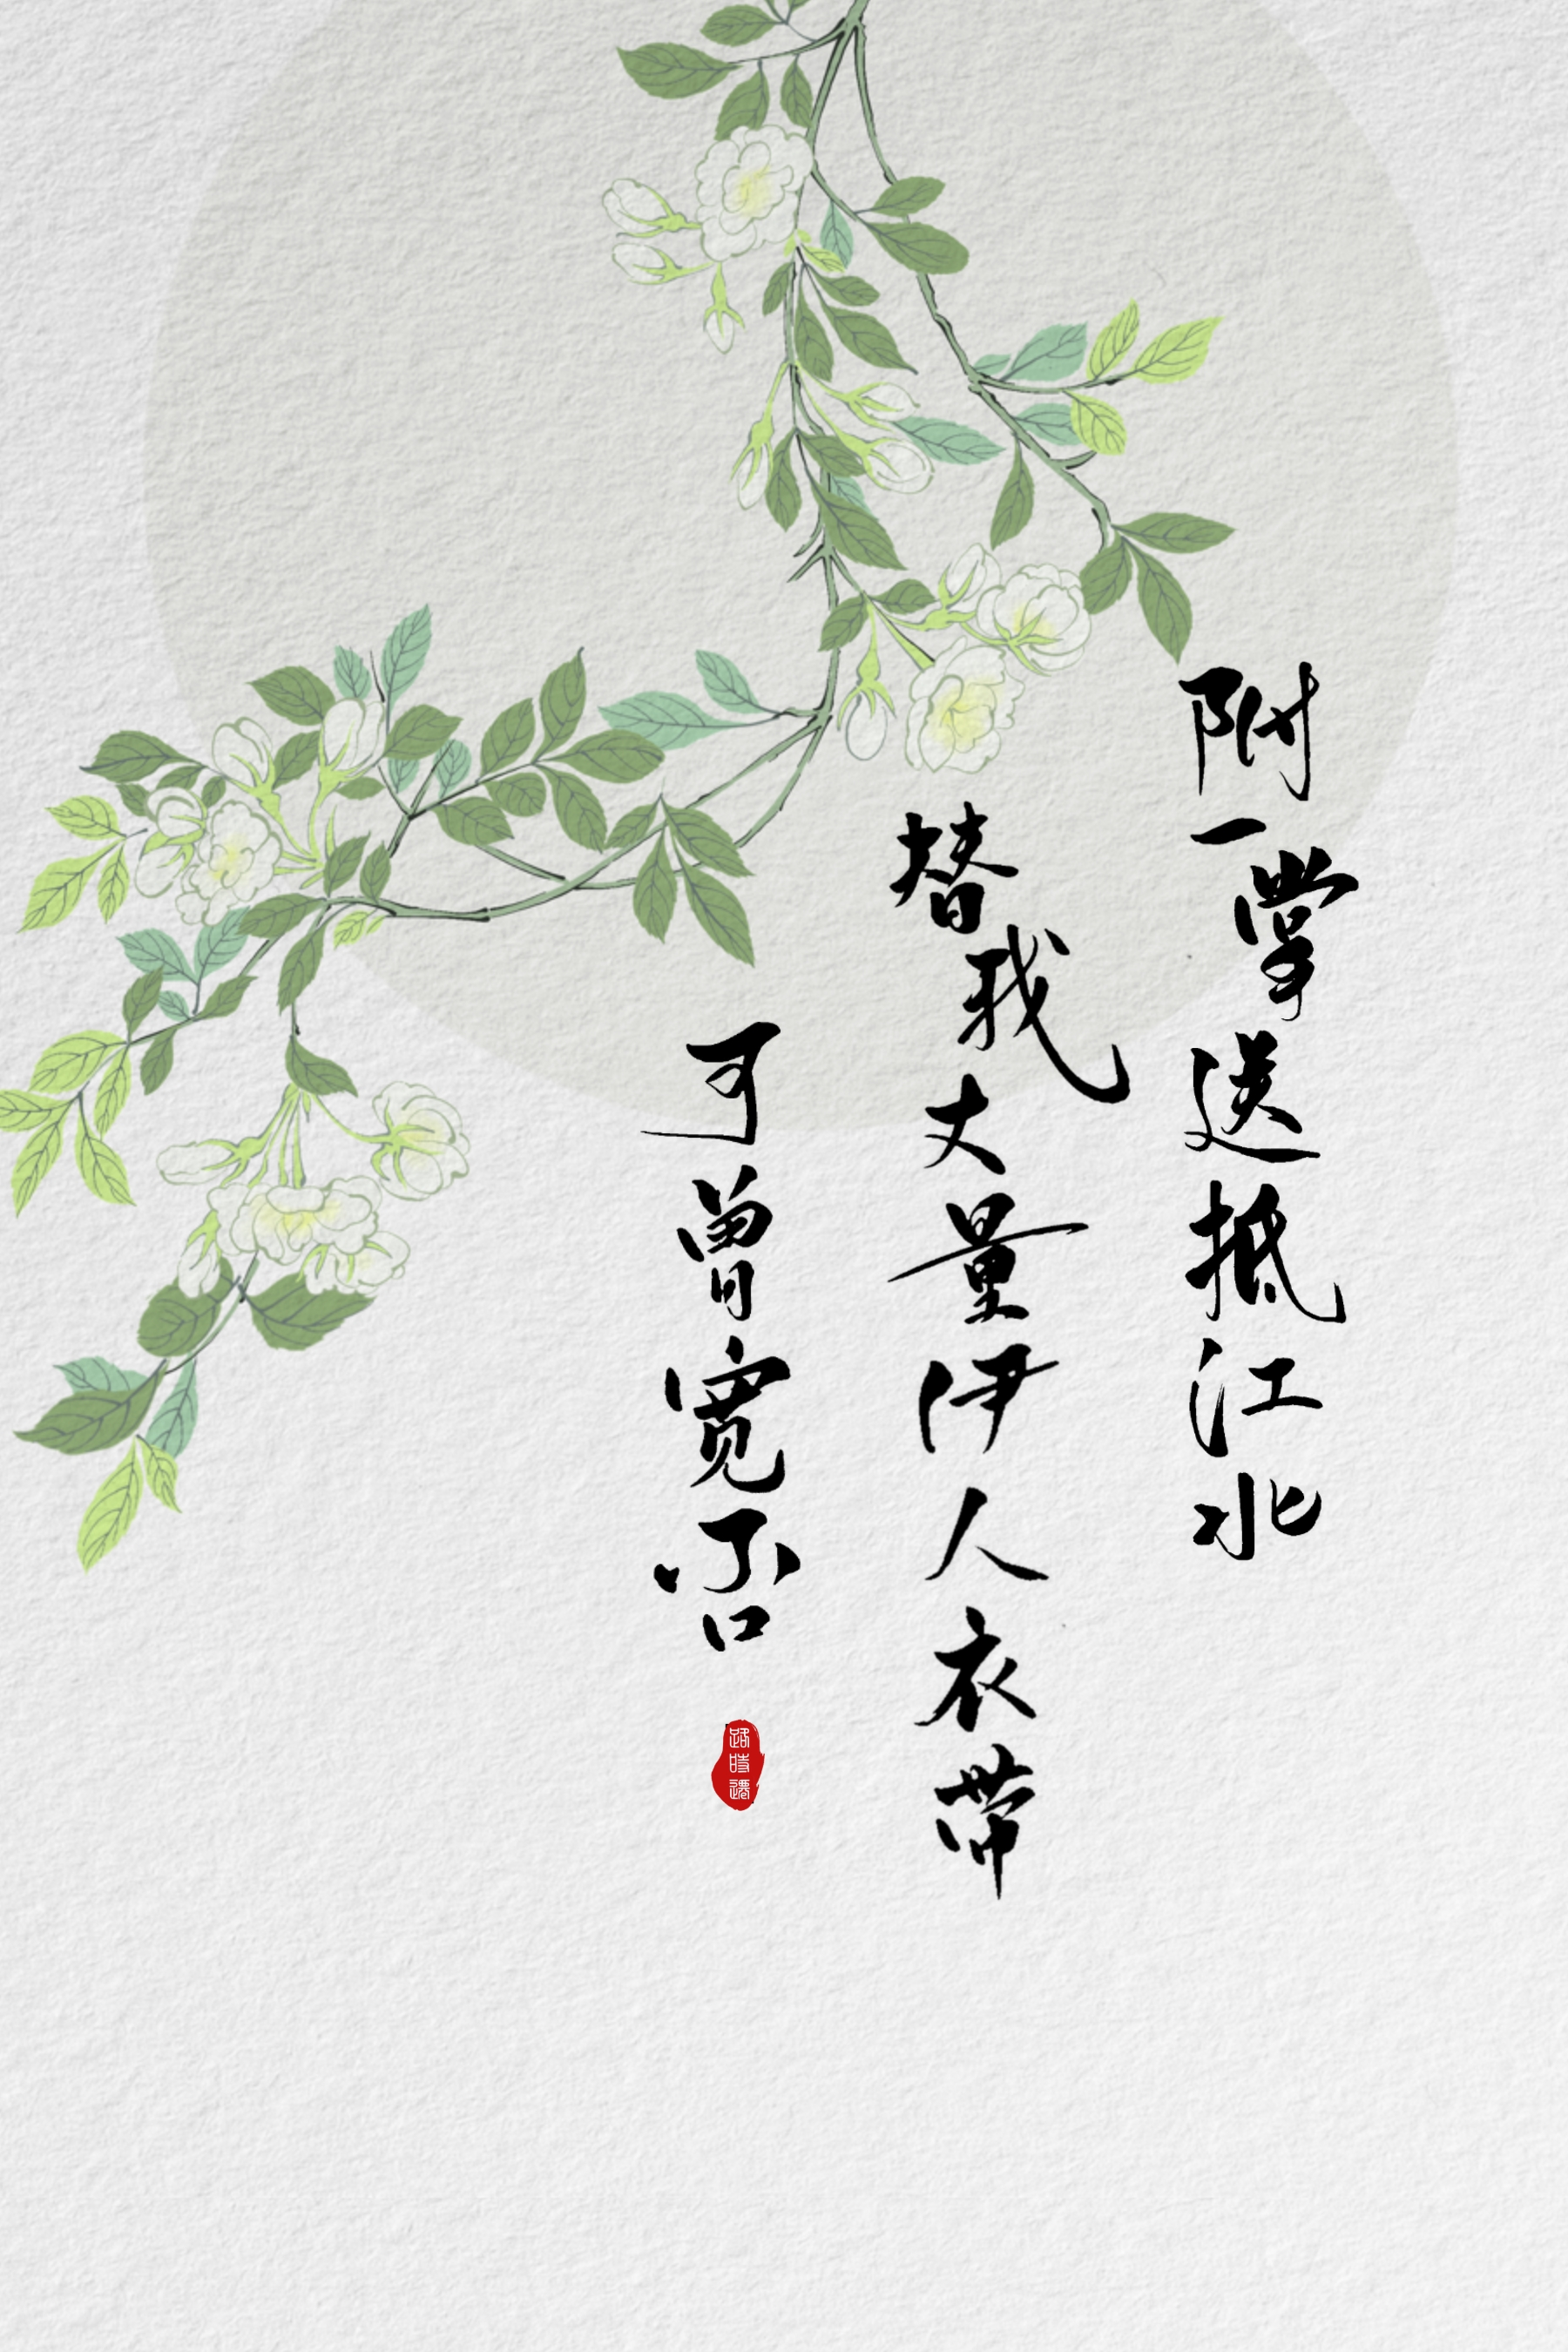 附一掌送抵江北
替我丈量伊人衣带
可曾宽否
路時遷